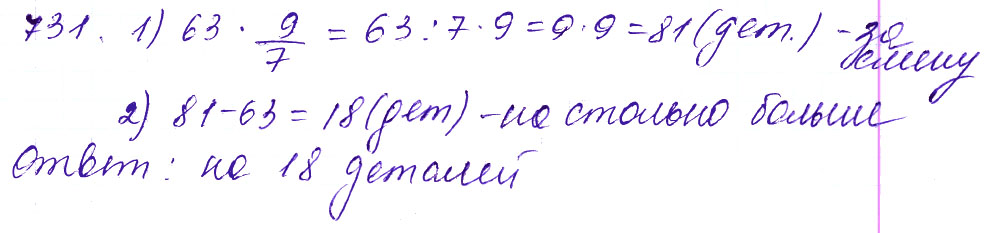 731. 1) 63 · 9/7 = 63 : 7 · 9 = 9 · 9 = 81 (дет.) - за смену
2) 81 - 63 = 18 (дет) - на столько больше
Ответ: на 18 деталей